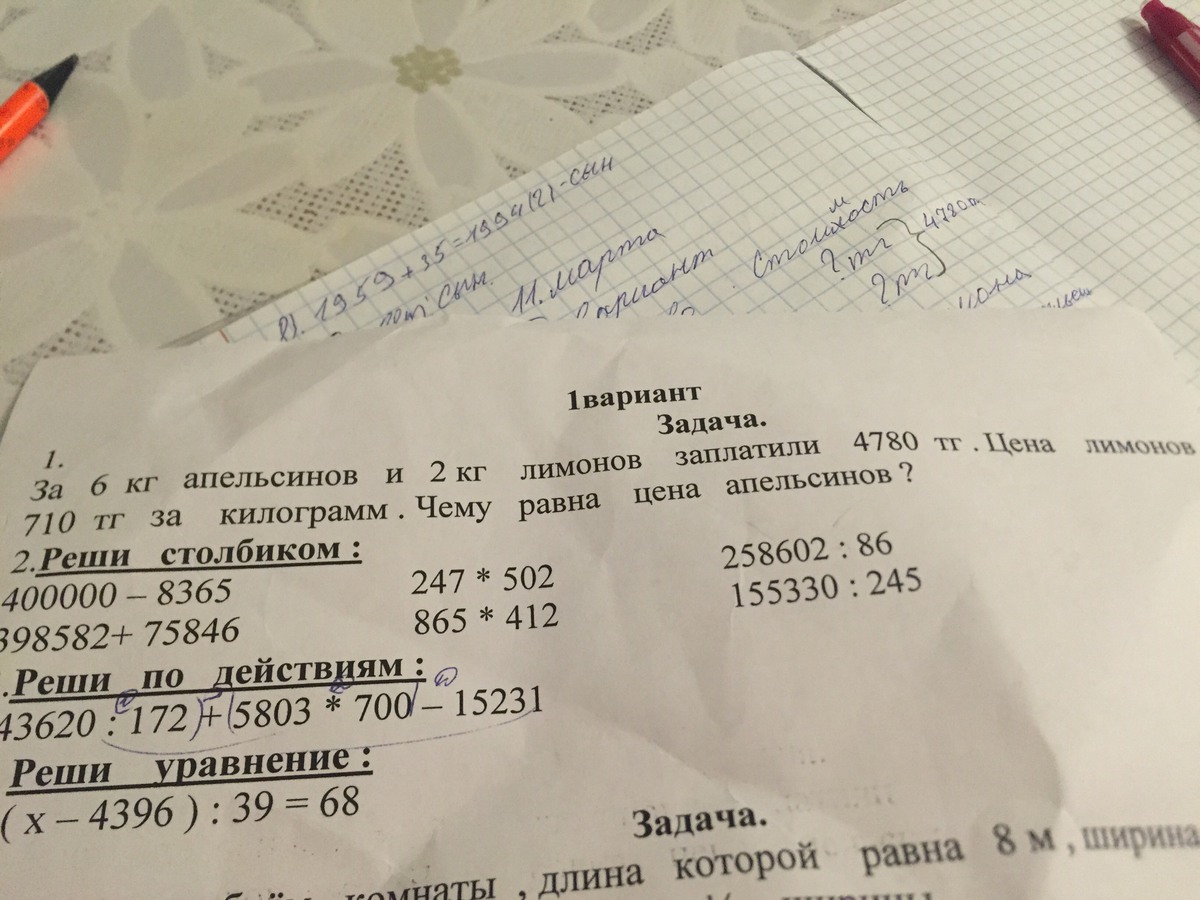 В). 1959 + 35 = 1994(г)-сын
сын.
11. марта
Вариант
Стоимость
? тг
? тг
4780тг
цена
1вариант
Задача.
1.
За 6 кг апельсинов и 2 кг лимонов заплатили 4780 тг . Цена лимонов
710 тг за килограмм . Чему равна цена апельсинов ?
2.Реши столбиком :
400000 – 8365 247 * 502 258602 : 86
398582+ 75846 865 * 412 155330 : 245
.Реши по действиям :
43620 : 172 + 5803 * 700 – 15231
Реши уравнение :
( х – 4396 ) : 39 = 68
Задача.
комнаты , длина которой равна 8 м , ширина
ширины